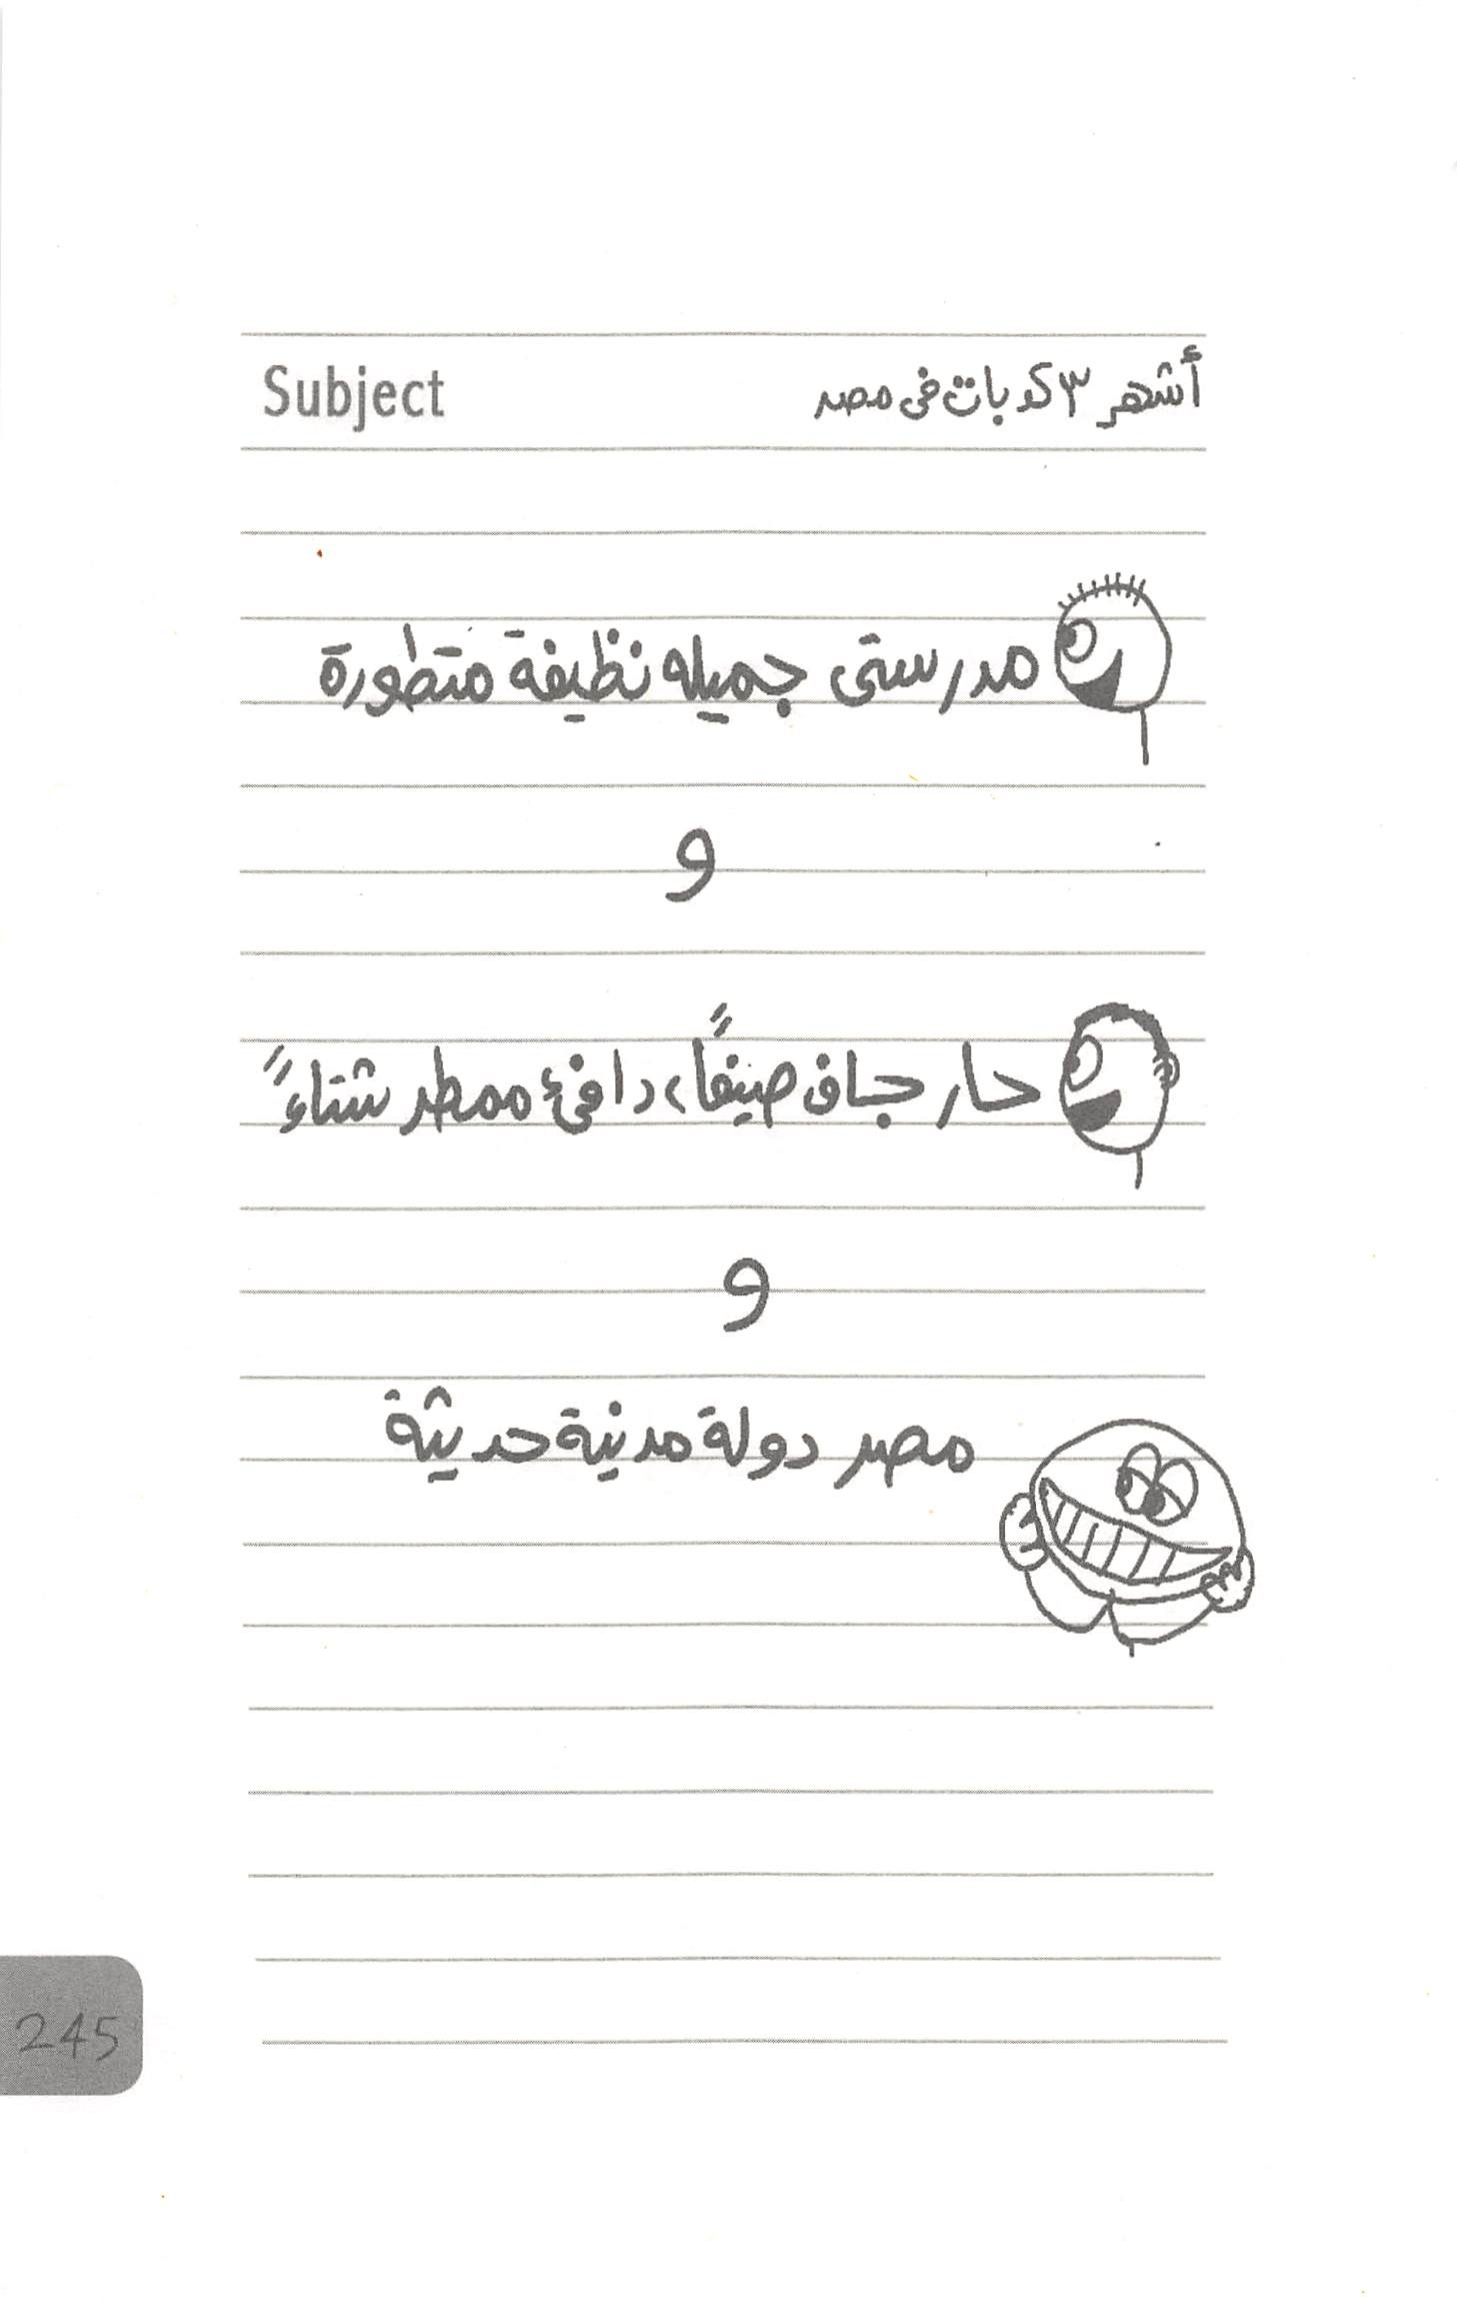 Subject أشهر ٣ كدبات فى مصر
مدرستى جميله نظيفة متطورة
و
حار جاف صيفاً، دافئ ممطر شتاءً
و
مصر دولة مدنية حديثة
245